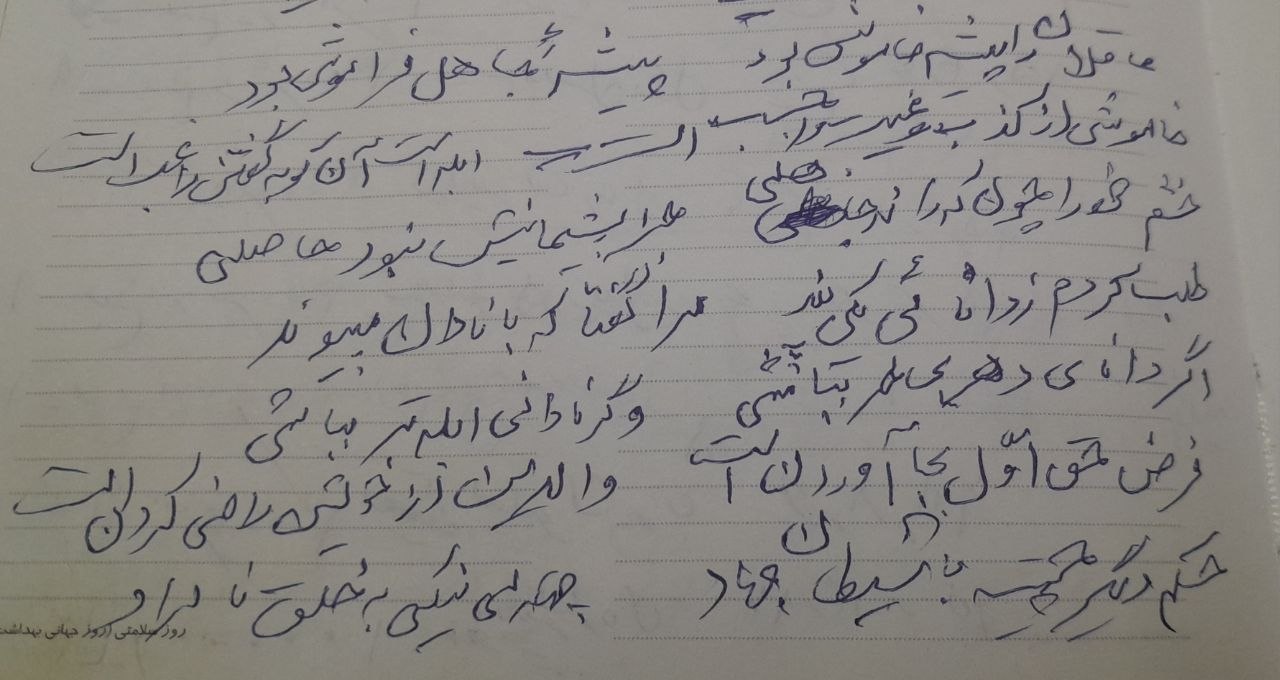 عاقلان را پیشه خاموشی بود پیشهٔ جاهل فراموشی بود
خاموشی از کذب و غیبت واجب است ابله است آن کو به گفتن راغب است
خشم خود را چون که راند جاهلی جز پشیمانیش نبود حاصلی
طلب کردم ز دانائی یکی پند مرا گفتا که با نادان مپیوند
اگر دانای دهری خر بباشی وگر نادانی ابله‌تر بباشی
فرض حق اول بجا آوردن است والدین از خویش راضی کردن است
حکم دیگر چیست با شیطان جهاد چهارمی نیکی به خلق نامراد
روز سلامتی (روز جهانی بهداشت